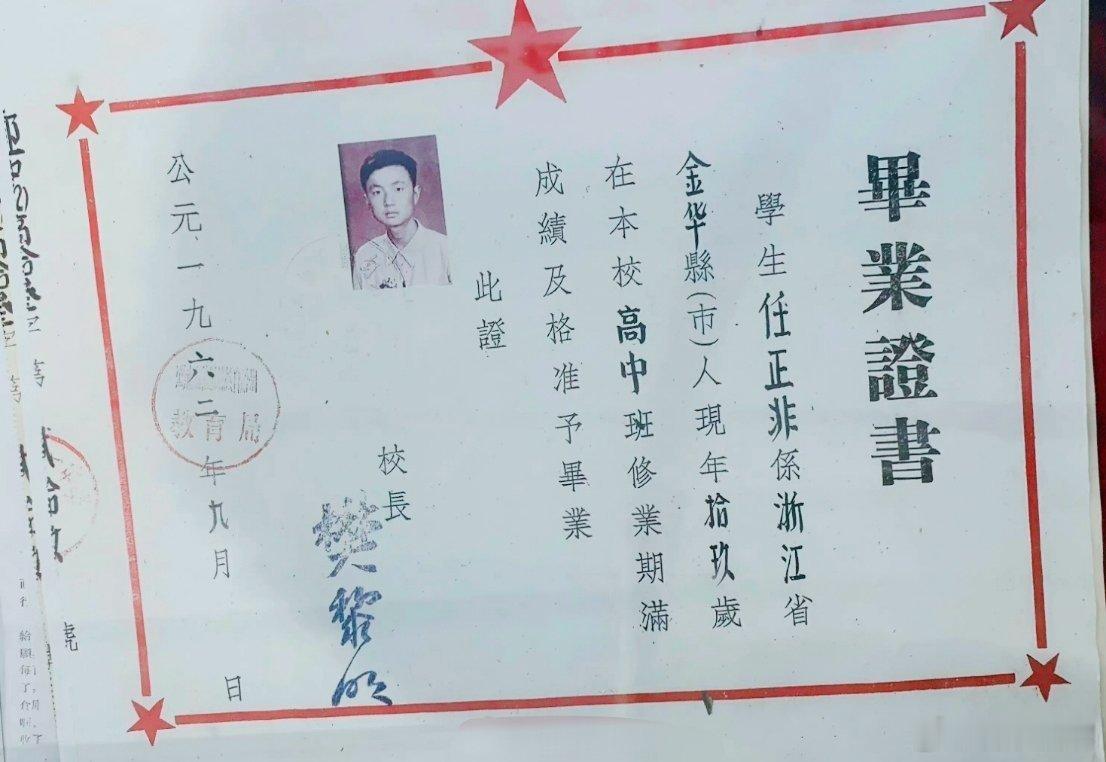 畢業證書
學生任正非係浙江省
金华縣(市)人現年拾玖歲
在本校高中班修業期滿
成績及格准予畢業
此證
校長
樊黎明
公元一九六二年九月 日
教育局